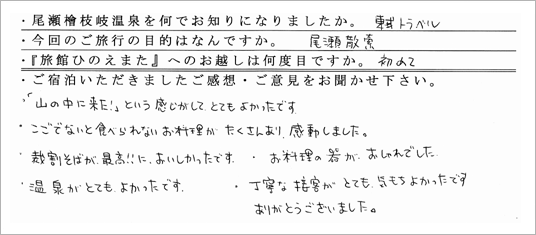 ・尾瀬檜枝岐温泉を何でお知りになりましたか。 東武トラベル
・今回のご旅行の目的はなんですか。 尾瀬散索
・『旅館ひのえまた』へのお越しは何度目ですか。 初めて
・ご宿泊いただきましたご感想・ご意見をお聞かせ下さい。
・「山の中に来た!」という感じがして、とてもよかったです
・ここでないと食べられないお料理が たくさんあり、感動しました。
・裁割そばが、最高!!に、おいしかったです。 ・お料理の器が、おしゃれでした。
・温泉がとても、よかったです。 ・丁寧な接客が とても、気もちよかったです
ありがとうございました。